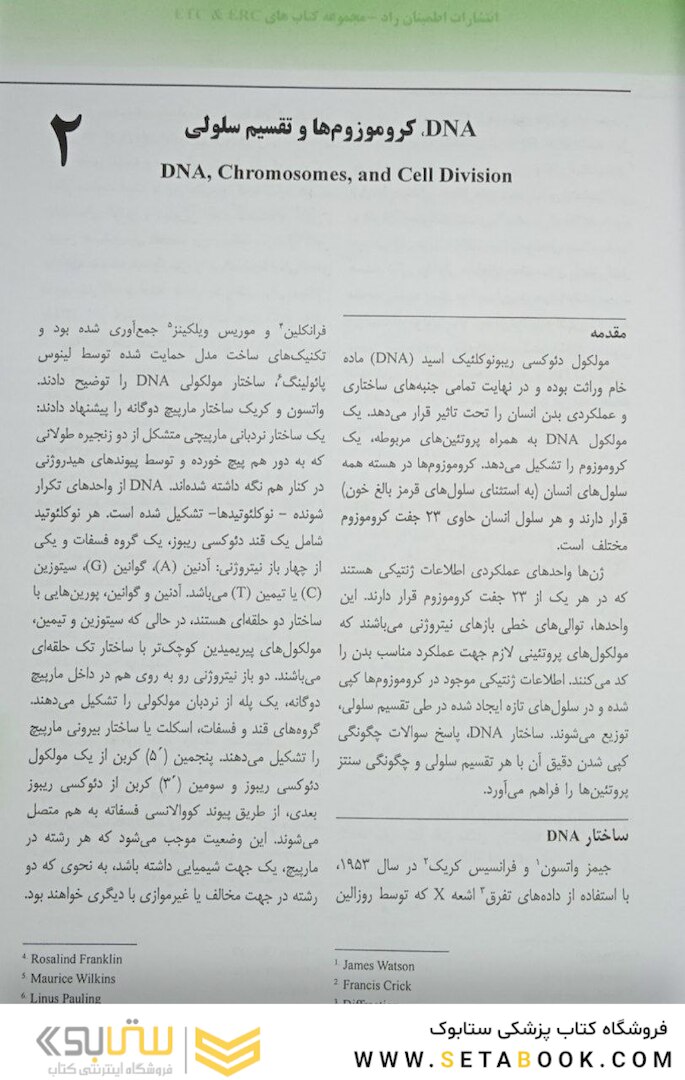 انتشارات اطمینان راد - مجموعه کتاب های ETC & ERC
۲
DNA، کروموزوم‌ها و تقسیم سلولی
DNA, Chromosomes, and Cell Division
مقدمه
مولکول دئوکسی ریبونوکلئیک اسید (DNA) ماده
خام وراثت بوده و در نهایت تمامی جنبه‌های ساختاری
و عملکردی بدن انسان را تحت تاثیر قرار می‌دهد. یک
مولکول DNA به همراه پروتئین‌های مربوطه، یک
کروموزوم را تشکیل می‌دهد. کروموزوم‌ها در هسته همه
سلول‌های انسان (به استثنای سلول‌های قرمز بالغ خون)
قرار دارند و هر سلول انسان حاوی ۲۳ جفت کروموزوم
مختلف است.
ژن‌ها واحدهای عملکردی اطلاعات ژنتیکی هستند
که در هر یک از ۲۳ جفت کروموزوم قرار دارند. این
واحدها، توالی‌های خطی بازهای نیتروژنی می‌باشند که
مولکول‌های پروتئینی لازم جهت عملکرد مناسب بدن را
کد می‌کنند. اطلاعات ژنتیکی موجود در کروموزوم‌ها کپی
شده و در سلول‌های تازه ایجاد شده در طی تقسیم سلولی،
توزیع می‌شوند. ساختار DNA، پاسخ سوالات چگونگی
کپی شدن دقیق آن با هر تقسیم سلولی و چگونگی سنتز
پروتئین‌ها را فراهم می‌آورد.
ساختار DNA
جیمز واتسون۱ و فرانسیس کریک۲ در سال ۱۹۵۳،
با استفاده از داده‌های تفرق۳ اشعه X که توسط روزالین
1. James Watson
2. Francis Crick
3. Diffraction
فرانکلین۴ و موریس ویلکینز۵ جمع‌آوری شده بود و
تکنیک‌های ساخت مدل حمایت شده توسط لینوس
پائولینگ۶، ساختار مولکولی DNA را توضیح دادند.
واتسون و کریک ساختار مارپیچ دوگانه را پیشنهاد دادند:
یک ساختار نردبانی مارپیچی متشکل از دو زنجیره طولانی
که به دور هم پیچ خورده و توسط پیوندهای هیدروژنی
در کنار هم نگه داشته شده‌اند. DNA از واحدهای تکرار
شونده - نوکلئوتیدها- تشکیل شده است. هر نوکلئوتید
شامل یک قند دئوکسی ریبوز، یک گروه فسفات و یکی
از چهار باز نیتروژنی: آدنین (A)، گوانین (G)، سیتوزین
(C) یا تیمین (T) می‌باشد. آدنین و گوانین، پورین‌هایی با
ساختار دو حلقه‌ای هستند، در حالی که سیتوزین و تیمین،
مولکول‌های پیریمیدین کوچک‌تر با ساختار تک حلقه‌ای
می‌باشند. دو باز نیتروژنی رو به روی هم در داخل مارپیچ
دوگانه، یک پله از نردبان مولکولی را تشکیل می‌دهند.
گروه‌های قند و فسفات، اسکلت یا ساختار بیرونی مارپیچ
را تشکیل می‌دهند. پنجمین (۵΄) کربن از یک مولکول
دئوکسی ریبوز و سومین (۳΄) کربن از دئوکسی ریبوز
بعدی، از طریق پیوند کووالانسی فسفاته به هم متصل
می‌شوند. این وضعیت موجب می‌شود که هر رشته در
مارپیچ، یک جهت شیمیایی داشته باشد، به نحوی که دو
رشته در جهت مخالف یا غیرموازی با دیگری خواهند بود.
4. Rosalind Franklin
5. Maurice Wilkins
6. Linus Pauling
فروشگاه کتاب پزشکی ستابوک
WWW.SETABOOK.COM
ستابوک
فروشگاه اینترنتی کتاب